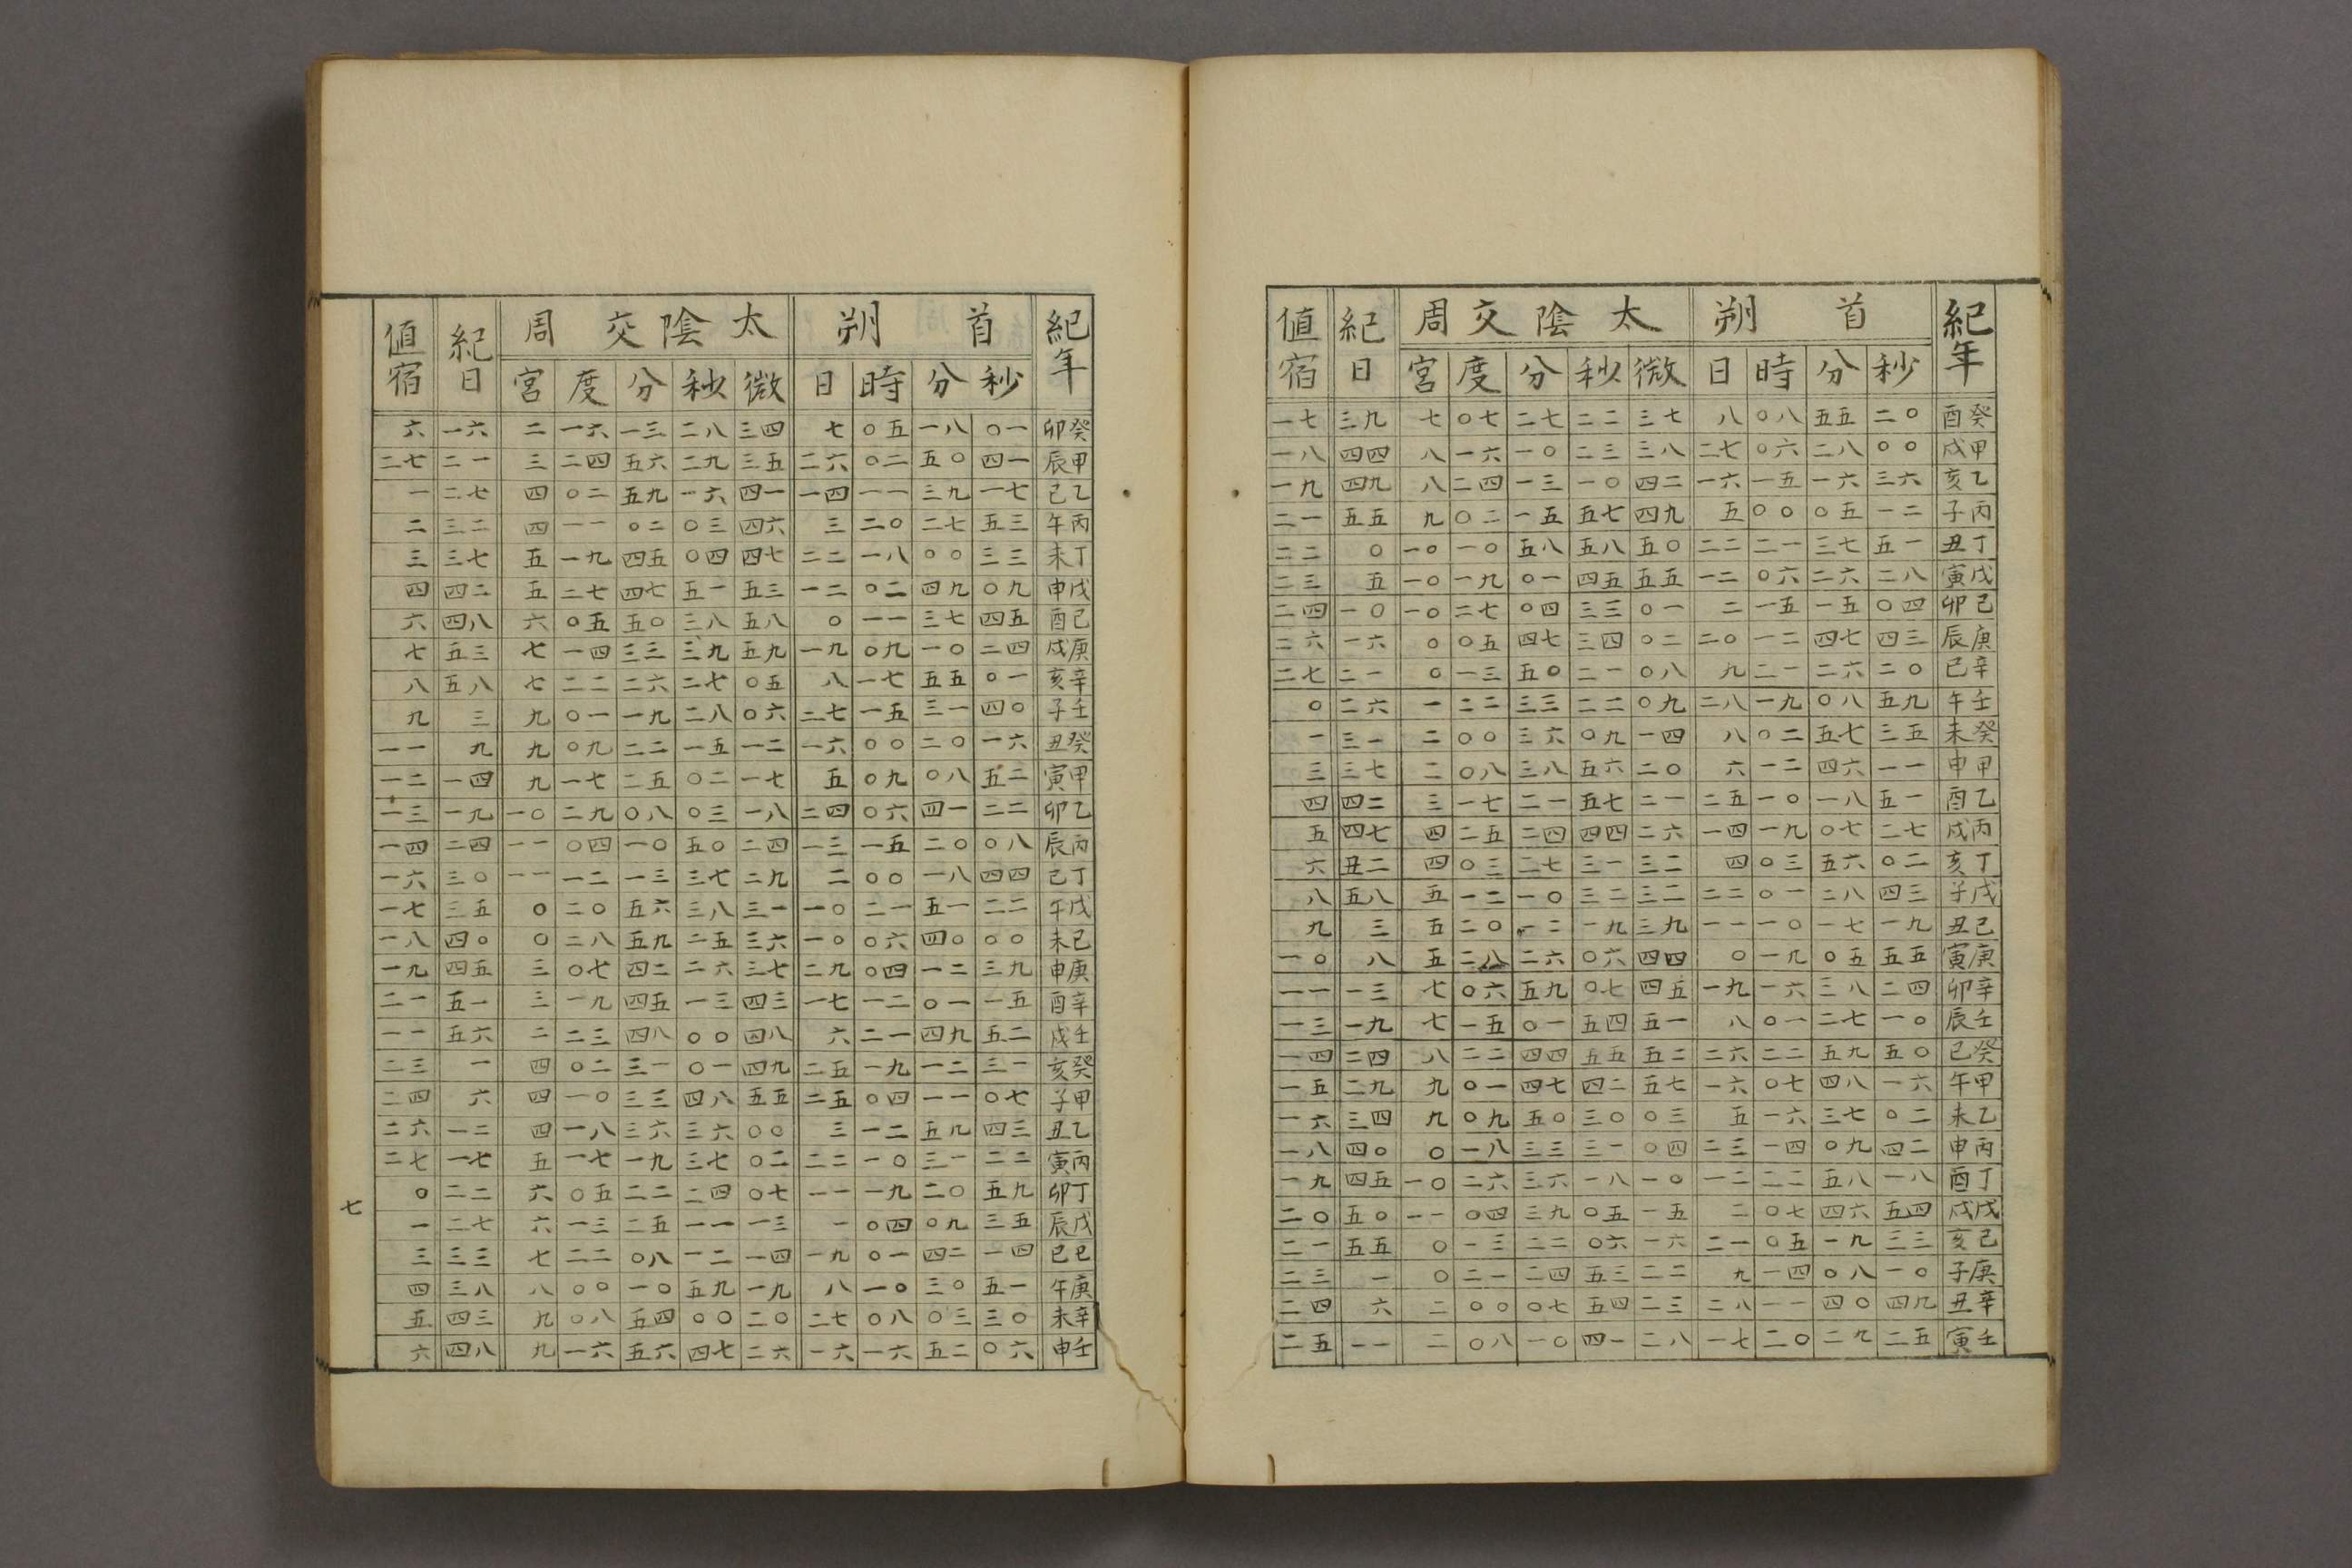 紀年 首朔 太陰交周 紀日 值宿
秒 分 時 日 微 秒 分 度 宮
癸酉 二〇 五五 〇八 八 三七 二二 二七 〇七 七 三九 一七
甲戌 〇〇 二八 〇六 二七 三八 二三 一〇 一六 八 四四 一八
乙亥 三六 一六 一五 一六 四二 一〇 一三 二四 八 四九 一九
丙子 一二 〇五 〇〇 五 四九 五七 一五 〇二 九 五五 二一
丁丑 五一 三七 二一 二二 五〇 五八 五八 一〇 一〇 〇 二二
戊寅 二八 二六 〇六 一二 五五 四五 〇一 一九 一〇 五 二三
己卯 〇四 一五 一五 二 〇一 三三 〇四 二七 一〇 一〇 二四
庚辰 四三 四七 一二 二〇 〇二 三四 四七 〇五 〇 一六 二六
辛巳 二〇 二六 二一 九 〇八 二一 五〇 一三 〇 二一 二七
壬午 五九 〇八 一九 二八 〇九 二二 三三 二二 一 二六 〇
癸未 三五 五七 〇二 八 一四 〇九 三六 〇〇 二 三一 一
甲申 一一 四六 一二 六 二〇 五六 三八 〇八 二 三七 三
乙酉 五一 一八 一〇 二五 二一 五七 二一 一七 三 四二 四
丙戌 二七 〇七 一九 一四 二六 四四 二四 二五 四 四七 五
丁亥 〇二 五六 〇三 四 三二 三一 二七 〇三 四 丑二 六
戊子 四三 二八 〇一 二二 三二 三二 一〇 一二 五 五八 八
己丑 一九 一七 一〇 一一 三九 一九 一二 二〇 五 三 九
庚寅 五五 〇五 一九 〇 四四 〇六 二六 二八 五 八 一〇
辛卯 二四 三八 一六 一九 四五 〇七 五九 〇六 七 一三 一一
壬辰 一〇 二七 〇一 八 五一 五四 〇一 一五 七 一九 一三
癸巳 五〇 五九 二二 二六 五二 五五 四四 二二 八 二四 一四
甲午 一六 四八 〇七 一六 五七 四二 四七 〇一 九 二九 一五
乙未 〇二 三七 一六 五 〇三 三〇 五〇 〇九 九 三四 一六
丙申 四二 〇九 一四 二三 〇四 三一 三三 一八 〇 四〇 一八
丁酉 一八 五八 二二 一二 一〇 一八 三六 二六 一〇 四五 一九
戊戌 五四 四六 〇七 二 一五 〇五 三九 〇四 一一 五〇 二〇
己亥 三三 一九 〇五 二一 一六 〇六 二二 一三 〇 五五 二一
庚子 一〇 〇八 一四 九 二二 五三 二四 二一 〇 一 二三
辛丑 四九 四〇 一一 二八 二三 五四 〇七 〇〇 二 六 二四
壬寅 二五 二九 二〇 一七 二八 四一 一〇 〇八 二 一一 二五
紀年 首朔 太陰交周 紀日 值宿
秒 分 時 日 微 秒 分 度 宮
癸卯 〇一 一八 〇五 七 三四 二八 一三 一六 二 一六 六
甲辰 四一 五〇 〇二 二六 三五 二九 五六 二四 三 二一 二七
乙巳 一七 三九 一一 一四 四一 一六 五九 〇二 四 二七 一
丙午 五三 二七 二〇 三 四六 〇三 〇二 一一 四 三二 二
丁未 三三 〇〇 一八 二二 四七 〇四 四五 一九 五 三七 三
戊申 〇九 四九 〇二 一二 五三 五一 四七 二七 五 四二 四
己酉 四五 三七 一一 〇 五八 三八 五〇 〇五 六 四八 六
庚戌 二四 一〇 〇九 一九 五九 三九 三三 一四 七 五三 七
辛亥 〇一 五五 一七 八 〇五 二七 二六 二二 七 五八 八
壬子 四〇 三一 一五 二七 〇六 二八 一九 〇一 九 三 九
癸丑 一六 二〇 〇〇 一六 一二 一五 二二 〇九 九 九 一一
甲寅 五二 〇八 〇九 五 一七 〇二 二五 一七 九 一四 一二
乙卯 二二 四一 〇六 二四 一八 〇三 〇八 二九 一〇 一九 一三
丙辰 〇八 二〇 一五 一三 二四 五〇 一〇 〇四 一一 二四 一四
丁巳 四四 一八 〇〇 二 二九 三七 一三 一二 一一 三〇 一六
戊午 二二 五一 二一 一〇 三一 三八 五六 二〇 〇 三五 一七
己未 〇〇 四〇 〇六 一〇 三六 二五 五九 二八 〇 四〇 一八
庚申 三九 一二 〇四 二九 三七 二六 四二 〇七 三 四五 一九
辛酉 一五 〇一 一二 一七 四三 一三 四五 一九 三 五一 二一
壬戌 五二 四九 二一 六 四八 〇〇 四八 二三 二 五六 一一
癸亥 三一 一二 一九 二五 四九 〇一 三一 〇二 四 一 二三
甲子 〇七 一一 〇四 二五 五五 四八 三三 一〇 四 六 二四
乙丑 四三 五九 一二 三 〇〇 三六 三六 一八 四 一二 二六
丙寅 二二 三一 一〇 二二 〇二 三七 一九 一七 五 一七 二七
丁卯 五九 二〇 一九 一一 〇七 二四 二二 〇五 六 二二 〇
戊辰 三五 〇九 〇四 一 一三 一一 二五 一三 六 二七 一
己巳 一四 四二 〇一 一九 一四 一二 〇八 二二 七 三三 三
庚午 五一 三〇 一〇 八 一九 五九 一〇 〇〇 八 三八 四
辛未 三〇 〇三 〇八 二七 二〇 〇〇 五四 〇八 九 四三 五
壬申 〇六 五二 一六 一六 二六 四七 五六 一六 九 四八 六
七